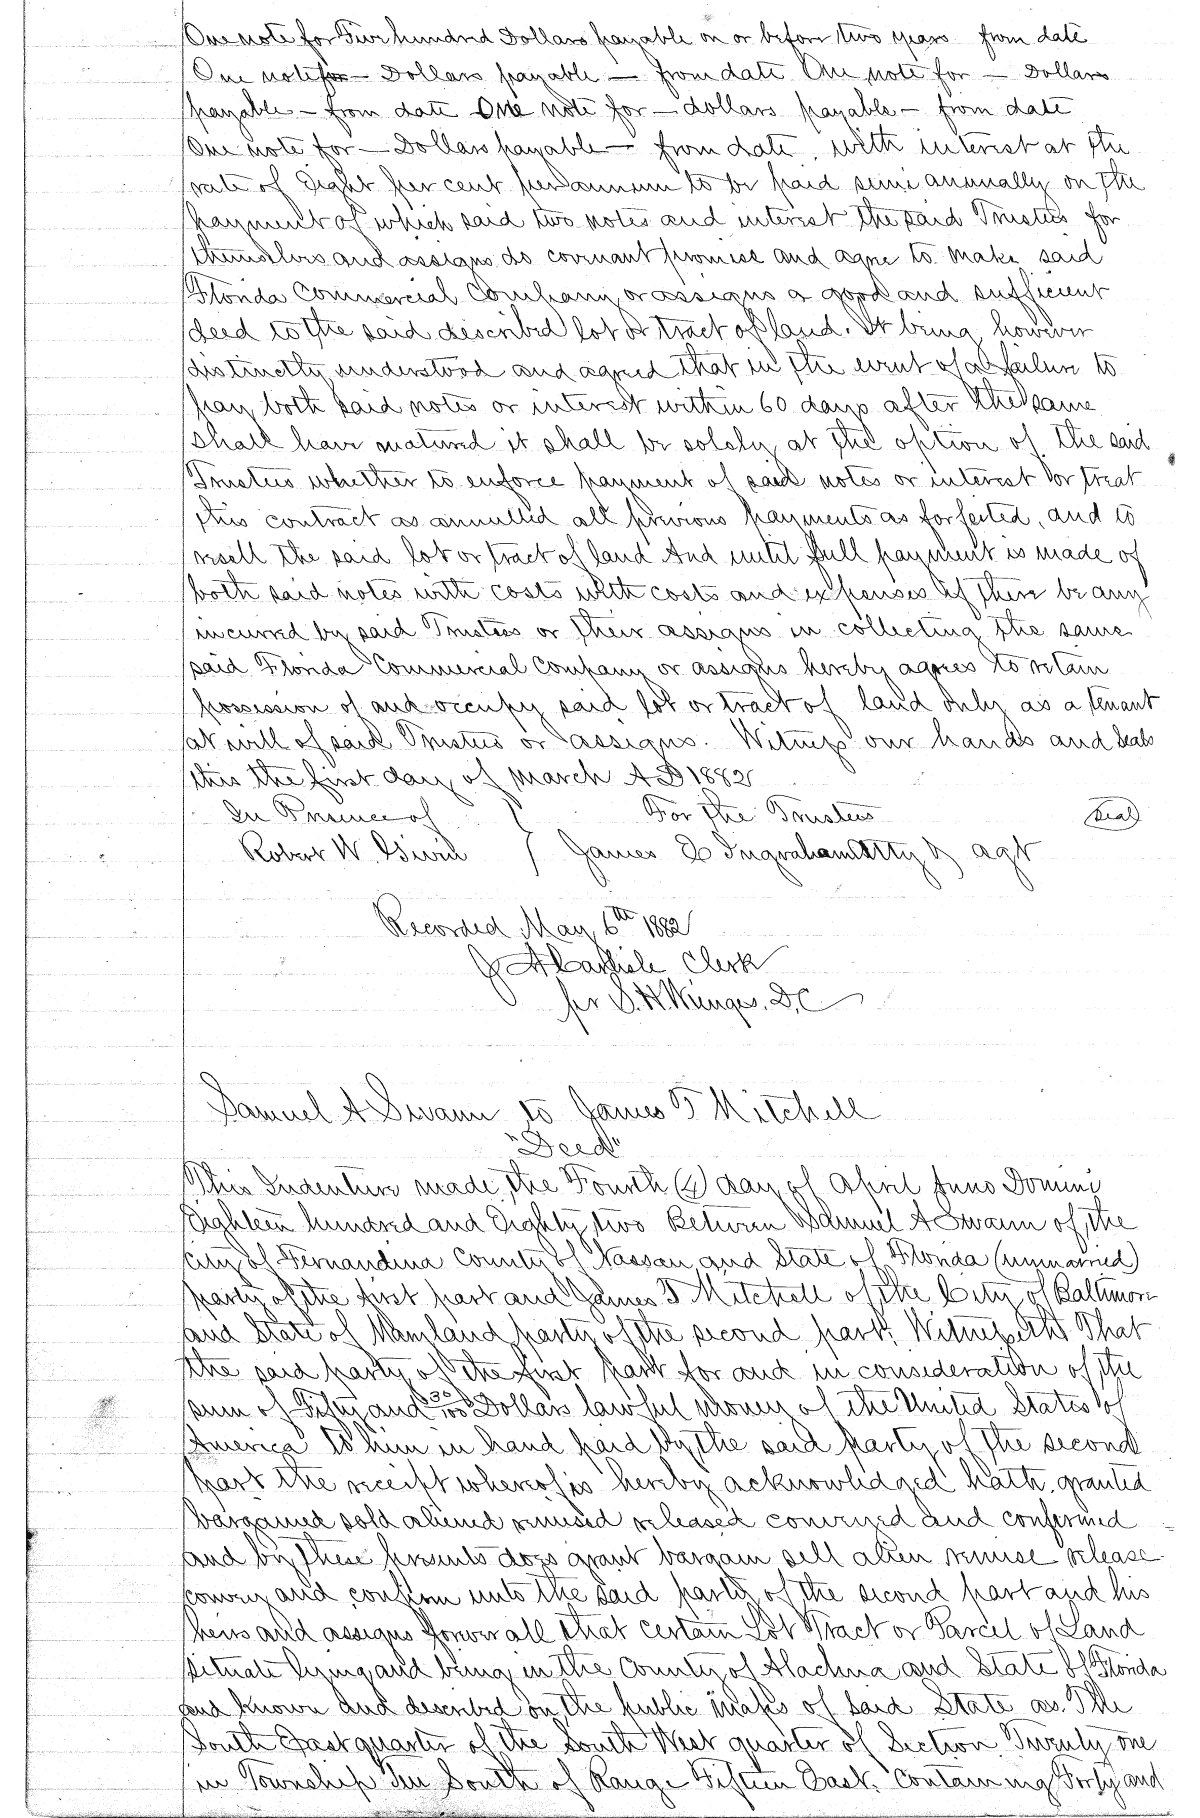 One note for Five hundred Dollars payable on or before two years from date
One note for — Dollars payable — from date One note for — Dollars
payable — from date One note for — dollars payable — from date
One note for — Dollars payable — from date, with interest at the
rate of Eight per cent per annum to be paid semi annually on the
payment of which said two notes and interest the said Trustees for
themselves and assigns do covenant promise and agree to make said
Florida Commercial Company or assigns a good and sufficient
deed to the said described lot or tract of land. It being however
distinctly understood and agreed that in the event of a failure to
pay both said notes or interest within 60 days after the same
shall have matured it shall be solely at the option of the said
Trustees whether to enforce payment of said notes or interest or treat
this contract as annulled all previous payments as forfeited, and to
resell the said lot or tract of land And until full payment is made of
both said notes with costs with costs and expenses if there be any
incurred by said Trustees or their assigns in collecting the same
said Florida Commercial Company or assigns hereby agrees to retain
possession of and occupy said lot or tract of land only as a tenant
at will of said Trustees or assigns. Witness our hands and seals
this the first day of March A D 1882
In Presence of } For the Trustees (Seal)
Robert W. } James E Ingraham Atty & agt
Recorded May 6th 1882
J A Carlisle Clerk
per S. H. Wienges. D, C
Samuel A Swann to James T Mitchell
"Deed"
This Indenture made, the Fourth (4) day of April Anno Domini
Eighteen hundred and Eighty two Between Samuel A Swann of the
City of Fernandina County of Nassau and State of Florida (unmarried)
party of the first part and James T Mitchell of the City of Baltimore
and State of Maryland party of the second part; Witnesseth That
the said party of the first part for and in consideration of the
sum of Fifty and 30/100 Dollars lawful money of the United States of
America to him in hand paid by the said party of the second
part the receipt whereof is hereby acknowledged hath, granted
bargained sold aliened remised released conveyed and confirmed
and by these presents does grant bargain sell alien remise release
convey and confirm unto the said party of the second part and his
heirs and assigns forever all that certain Lot Tract or Parcel of Land
situate lying and being in the County of Alachua and State of Florida
and known and described on the public maps of said State as. The
South East quarter of the South West quarter of Section Twenty one
in Township Ten South of Range Fifteen East. Containing Forty and